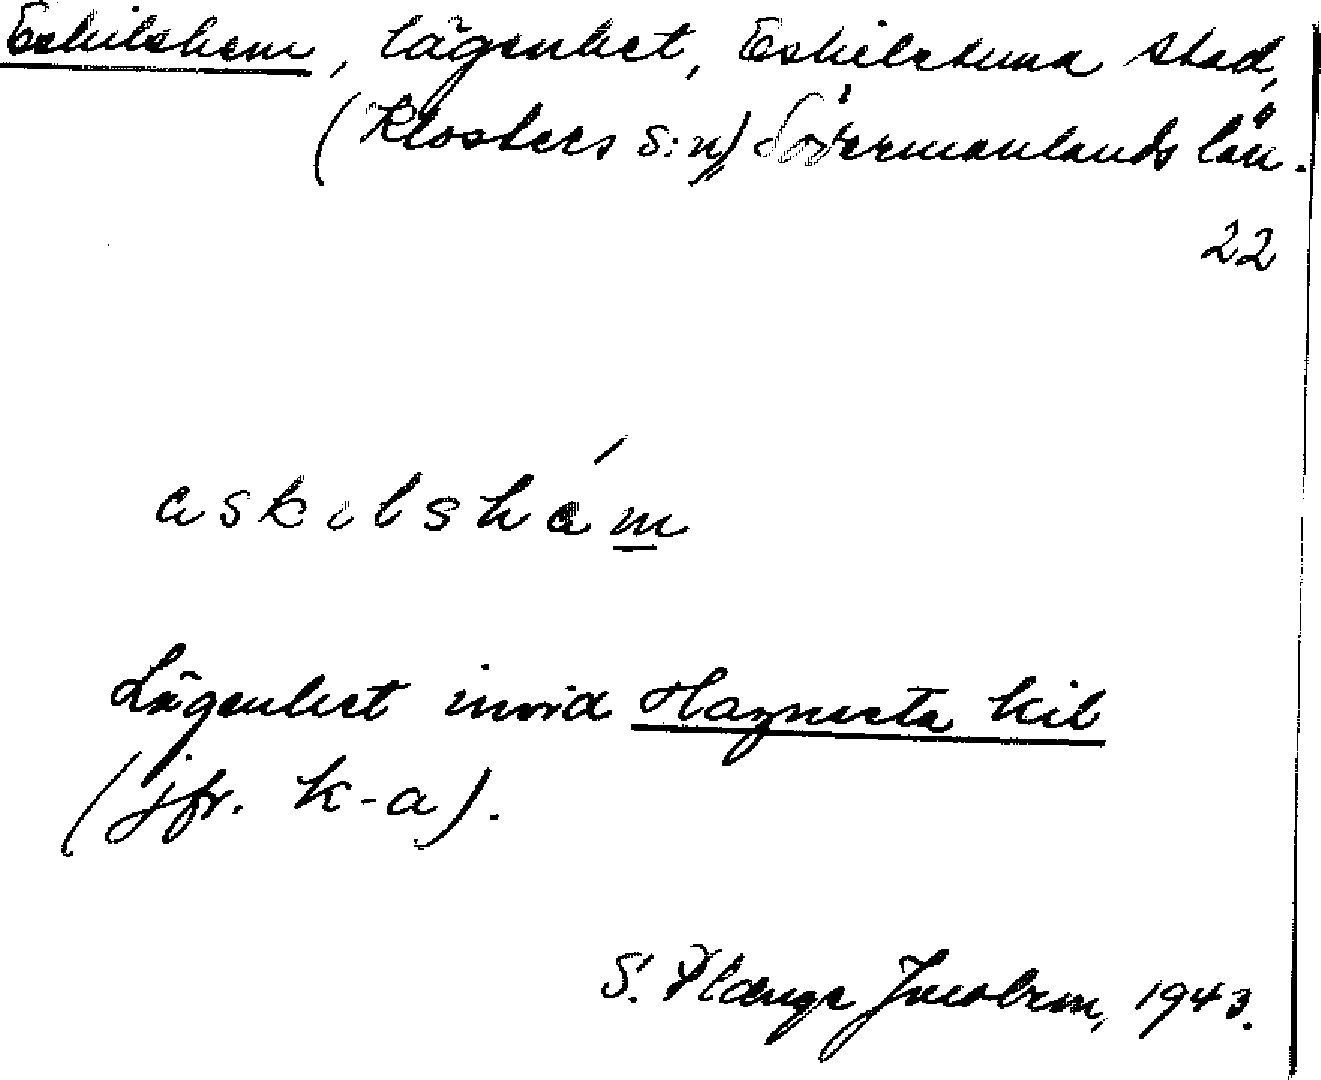 Eskilshem, lägenhet, Eskilstuna stad,
(Klosters s:n) Södermanlands län.
22
eskilshém
Lägenhet invid Hagnesta kil
(jfr. k-a).
S. Plænge Jacobson, 1943.